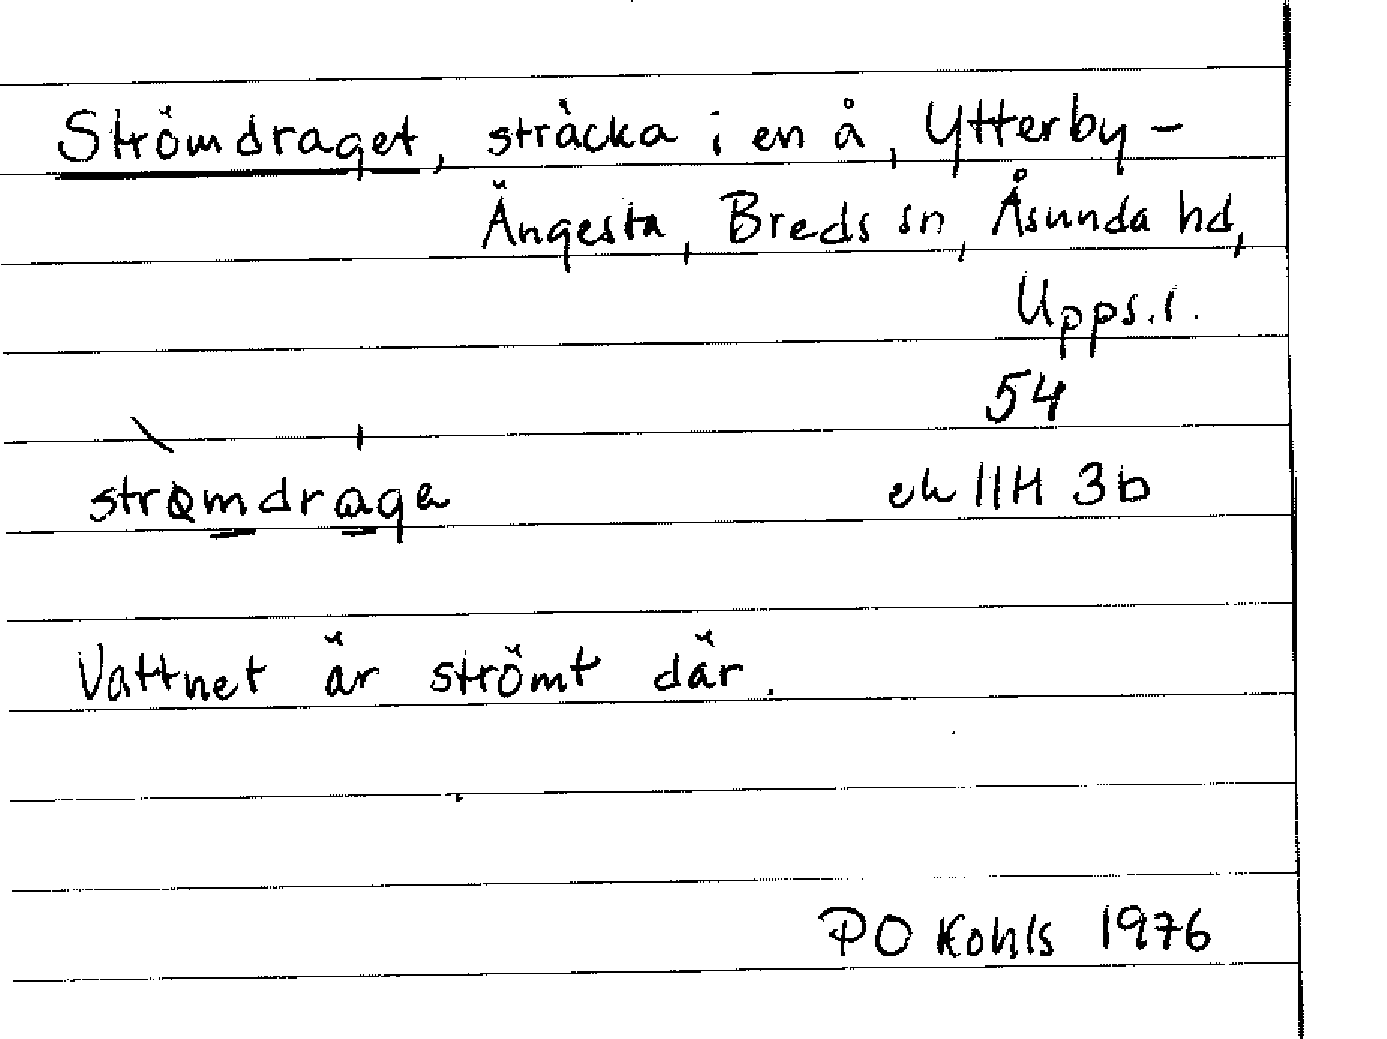 Strömdraget, sträcka i en å, Ytterby-
Ängesta, Breds sn, Åsunda hd,
Upps.l.
54
strømdraga ek 11H 3b
Vattnet är strömt där.
PO Kohls 1976